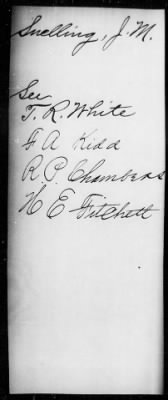 Snelling, J. M.
See
T. R. White
F A Kidd
R. P. Chambers
H E Fitchett